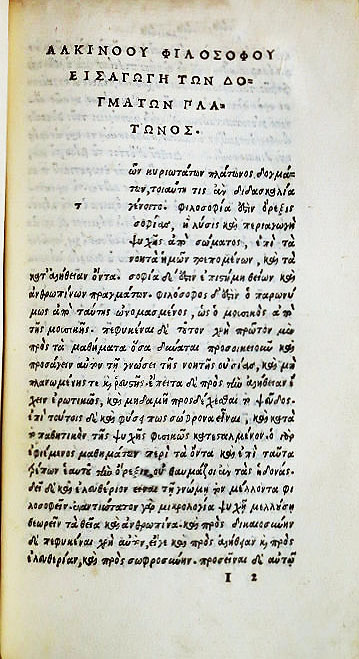 ΑΛΚΙΝΟΟΥ ΦΙΛΟΣΟΦΟΥ
ΕΙΣΑΓΩΓΗ ΤΩΝ ΔΟ=
ΓΜΑΤΩΝ ΠΛΑ=
ΤΩΝΟΣ.
ῶν κυριωτάτων πλάτωνος δογμά=
των, τοιαύτη τις ἂν διδασκαλία
τ
γένοιτο. φιλοσοφία ὅτιν ὄρεξις
σοφίας, ἢ λύσις καὶ περιαγωγὴ
ψυχῆς ἀπὸ σώματος, ἐπὶ τὰ
νοητὰ ἡμῶν τρεπομένων, καὶ τὰ
κατ' ἀλήθειαν ὄντα. σοφία δ' ὅτιν ἐπιστήμη θείων καὶ
ἀνθρωπίνων πραγμάτων. φιλόσοφος δ' ὅτιν ὁ παρωνύ
μως ἀπὸ ταύτης ὠνομασμένος, ὡς ὁ μουσικὸς ἀπὸ
τῆς μουσικῆς. πεφυκέναι δὲ τοῦτον χρὴ πρῶτον μὲν
πρὸς τὰ μαθήματα ὅσα δύναται προσοικειοῦν καὶ
προσάγειν αὐτὸν τῇ γνώσει τῆς νοητῆς οὐσίας, καὶ μὴ
πλανωμένης τε καὶ ῥευστῆς. ἔπειτα δὲ πρὸς τὴν ἀλήθειαν ἔ
χειν ἐρωτικῶς, καὶ μηδαμῇ προσδέχεσθαι τὸ ψεῦδος.
ἐπὶ τούτοις δὲ καὶ φύσει πως σώφρονα εἶναι, καὶ κατὰ
τὸ παθητικὸν τῆς ψυχῆς φυσικῶς κατεσταλμένον. ὁ γὰρ
ἐφιέμενος μαθημάτων περὶ τὰ ὄντα καὶ ἐπὶ ταῦτα
τρέπων ἑαυτοῦ τὴν ὄρεξιν, οὐ θαυμάζοι ἂν τὰς ἡδονάς.
δεῖ δὲ καὶ ἐλευθέριον εἶναι τῇ γνώμῃ τὸν μέλλοντα φι
λοσοφεῖν. ἐναντιώτατον γὰρ μικρολογία ψυχῇ μελλούσῃ
θεωρεῖν τὰ θεῖα καὶ ἀνθρώπινα. καὶ πρὸς δικαιοσύνην
δὲ πεφυκέναι χρὴ αὐτὸν, εἴγε καὶ πρὸς ἀλήθειαν καὶ πρὸς
ἐλευθερίαν, καὶ πρὸς σωφροσύνην. προσεῖναι δὲ αὐτῷ
I 2